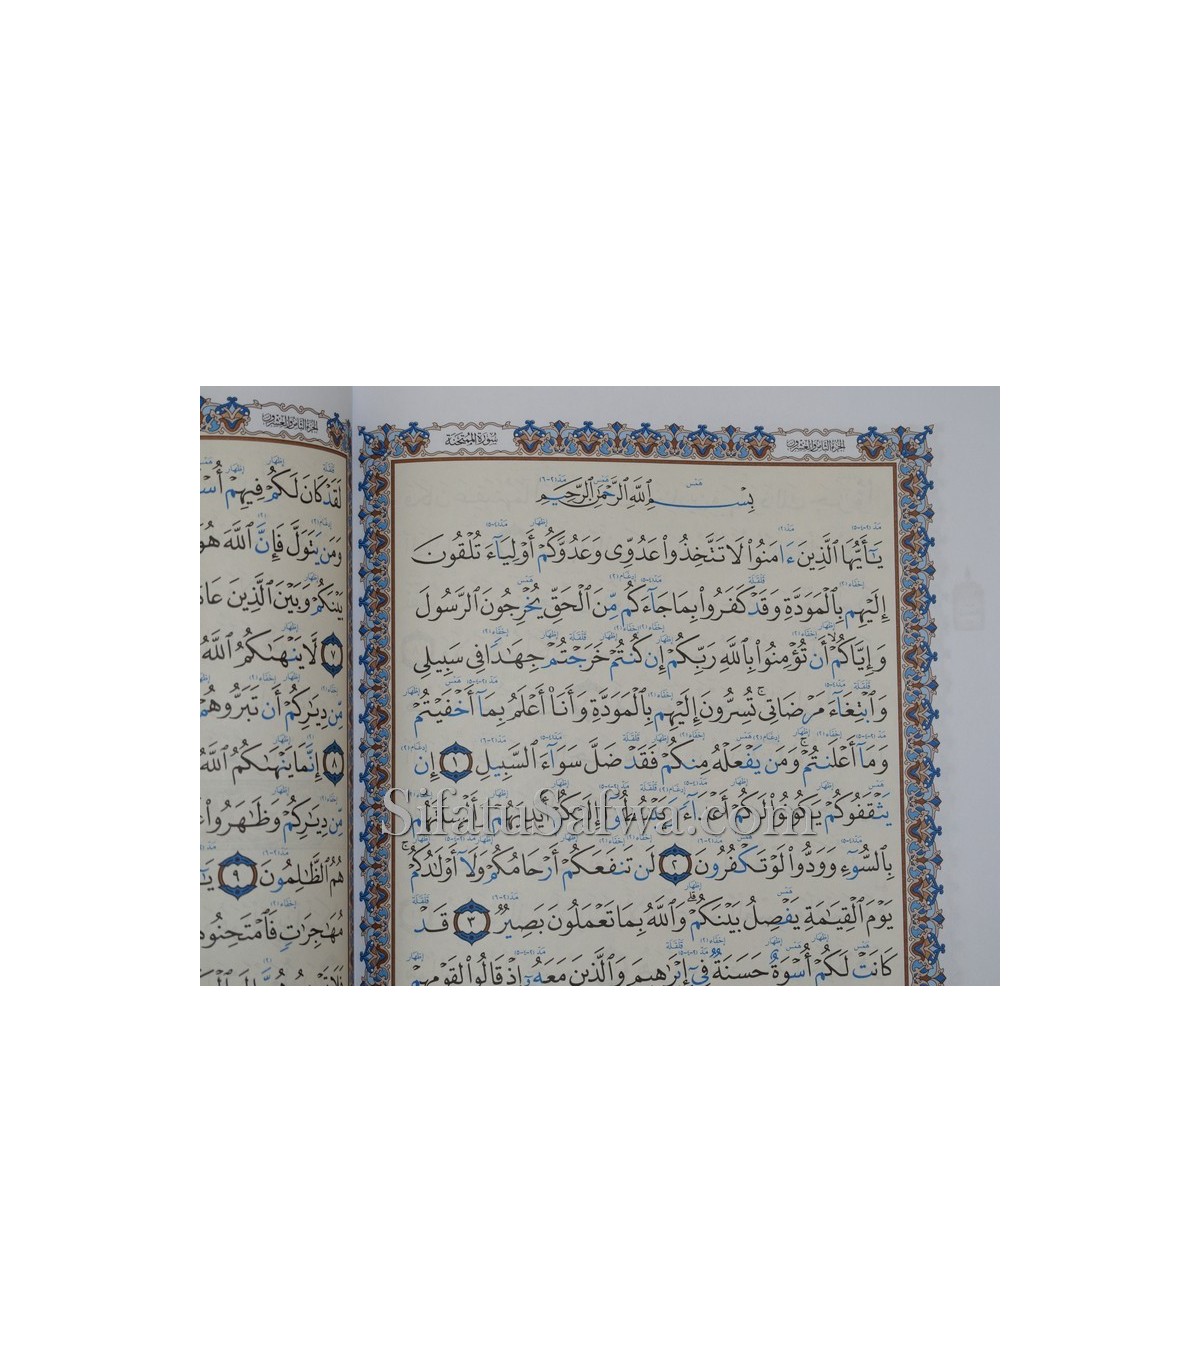 الجزء الثامن والعشرون
سورة الممتحنة
بِسْمِ ٱللَّهِ ٱلرَّحْمَٰنِ ٱلرَّحِيمِ
يَٰٓأَيُّهَا ٱلَّذِينَ ءَامَنُوا۟ لَا تَتَّخِذُوا۟ عَدُوِّى وَعَدُوَّكُمْ أَوْلِيَآءَ تُلْقُونَ
إِلَيْهِم بِٱلْمَوَدَّةِ وَقَدْ كَفَرُوا۟ بِمَا جَآءَكُم مِّنَ ٱلْحَقِّ يُخْرِجُونَ ٱلرَّسُولَ
وَإِيَّاكُمْ ۙ أَن تُؤْمِنُوا۟ بِٱللَّهِ رَبِّكُمْ إِن كُنتُمْ خَرَجْتُمْ جِهَٰدًا فِى سَبِيلِى
وَٱبْتِغَآءَ مَرْضَاتِى ۚ تُسِرُّونَ إِلَيْهِم بِٱلْمَوَدَّةِ وَأَنَا۠ أَعْلَمُ بِمَآ أَخْفَيْتُمْ
وَمَآ أَعْلَنتُمْ ۚ وَمَن يَفْعَلْهُ مِنكُمْ فَقَدْ ضَلَّ سَوَآءَ ٱلسَّبِيلِ ١ إِن
يَثْقَفُوكُمْ يَكُونُوا۟ لَكُمْ أَعْدَآءً وَيَبْسُطُوٓا۟ إِلَيْكُمْ أَيْدِيَهُمْ وَأَلْسِنَتَهُم
بِٱلسُّوٓءِ وَوَدُّوا۟ لَوْ تَكْفُرُونَ ٢ لَن تَنفَعَكُمْ أَرْحَامُكُمْ وَلَآ أَوْلَٰدُكُمْ ۚ
يَوْمَ ٱلْقِيَٰمَةِ يَفْصِلُ بَيْنَكُمْ ۚ وَٱللَّهُ بِمَا تَعْمَلُونَ بَصِيرٌ ٣ قَدْ
كَانَتْ لَكُمْ أُسْوَةٌ حَسَنَةٌ فِىٓ إِبْرَٰهِيمَ وَٱلَّذِينَ مَعَهُۥٓ إِذْ قَالُوا۟ لِقَوْمِهِمْ
SifatuSafwa.com
الجزء الثامن والعشرون
لَقَدْ كَانَ لَكُمْ فِيهِمْ
وَمَن يَتَوَلَّ فَإِنَّ ٱللَّهَ هُوَ
بَيْنَكُمْ وَبَيْنَ ٱلَّذِينَ
٧ لَّا يَنْهَىٰكُمُ ٱللَّهُ
مِّن دِيَٰرِكُمْ أَن تَبَرُّوهُمْ
٨ إِنَّمَا يَنْهَىٰكُمُ ٱللَّهُ
مِّن دِيَٰرِكُمْ وَظَٰهَرُوا۟
هُمُ ٱلظَّٰلِمُونَ ٩
مُهَٰجِرَٰتٍ فَٱمْتَحِنُوهُنَّ